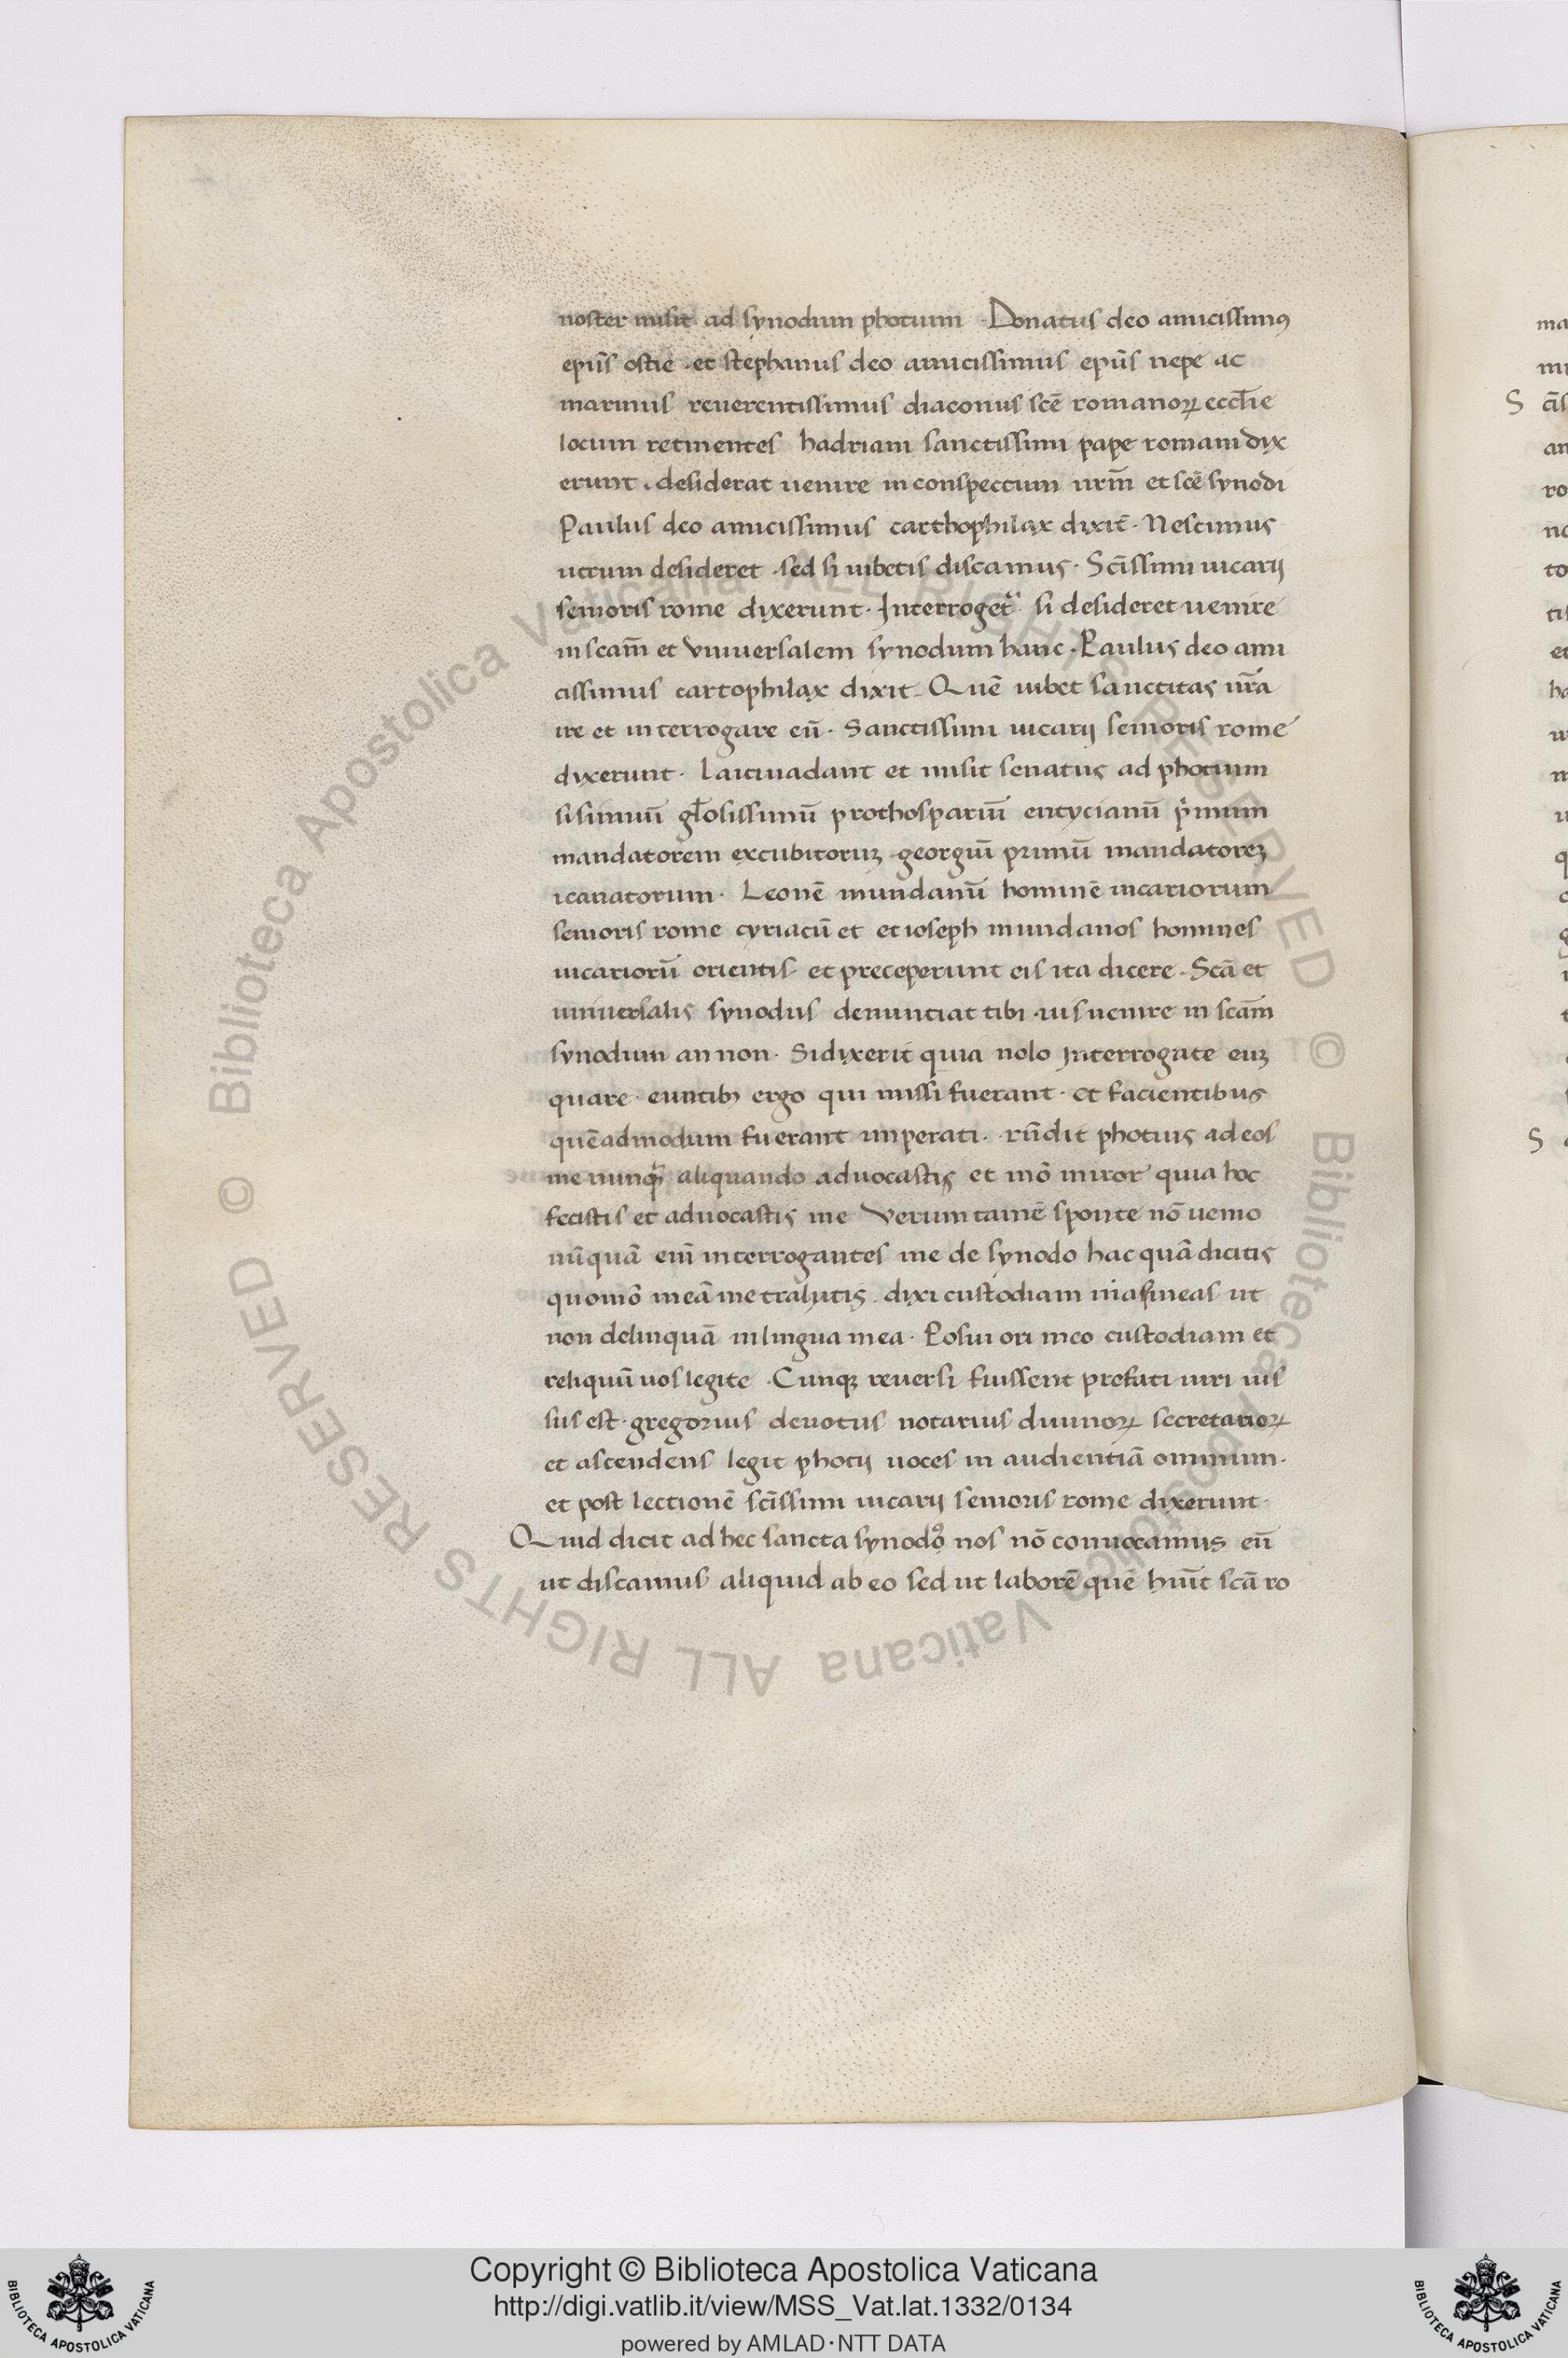 noster misit ad synodum photium · Donatus deo amicissimꝰ
ep̃us ostie · et stephanus deo amicissimus ep̃us nepe ac
marinus reuerentissimus diaconus sc̃e romanoꝝ eccl̃ie
locum retinentes hadriani sanctissimi pape romani dix
erunt · desiderat uenire in conspectum ur̃m et sc̃e synodi
Paulus deo amicissimus carthophilax dixit · Nescimus
utrum desideret · sed si iubetis discamus · Sc̃issimi uicarij
senioris rome dixerunt · Interroget᷑ · si desideret uenire
in scam̃ et vniuersalem synodum hanc · Paulus deo ami
cissimus cartophilax dixit · Quē iubet sanctitas ur̃a
ire et interrogare eū · Sanctissimi uicarij senioris rome
dixerunt · laici uadant et misit senatus ad photium
sisimiū gl̃osissimū prothospariū eutycianū pⁱmum
mandatorem excubitoruꝫ · georgiū primū mandatoreꝫ
icanatorum · Leonē mundanū hominē uicariorum
senioris rome cyriacū et et ioseph mundanos homines
uicariorū orientis · et preceperunt eis ita dicere · Scā et
uniuersalis synodus denunciat tibi · uis uenire in scam̃
synodum an non · Si dixerit quia nolo Interrogate euꝫ
quare · euntibꝫ ergo qui missi fuerant · et facientibus
quēadmodum fuerant imperati · rn̄dit photius ad eos
me nunqᷓ aliquando aduocastis et mō miror quia hoc
fecistis et aduocastis me Verum tamē sponte nō uenio
nūquā eni᷑ interrogantes me de synodo hac quā dicitis
quomō meā me trahitis · dixi custodiam uias meas ut
non delinquā in lingua mea · Posui ori meo custodiam et
reliquū uos legite · Cunqꝫ reuersi fuissent prefati uiri uis
sus est · gregorius deuotus notarius diuinoꝝ secretarioꝝ
et ascendens legit photij uoces in audientiā omnium ·
et post lectionē sc̃issimi uicarij senioris rome dixerunt ·
Quid dicit ad hec sancta synodꝰ nos nō conuocamus eū
ut discamus aliquid ab eo sed ut laborē quē hūit scā ro
ma
S
S
© Biblioteca Apostolica Vaticana ALL RIGHTS RESERVED © Biblioteca Apostolica Vaticana ALL RIGHTS RESERVED
Copyright © Biblioteca Apostolica Vaticana
http://digi.vatlib.it/view/MSS_Vat.lat.1332/0134
powered by AMLAD·NTT DATA
BIBLIOTECA APOSTOLICA VATICANA
BIBLIOTECA APOSTOLICA VATICANA